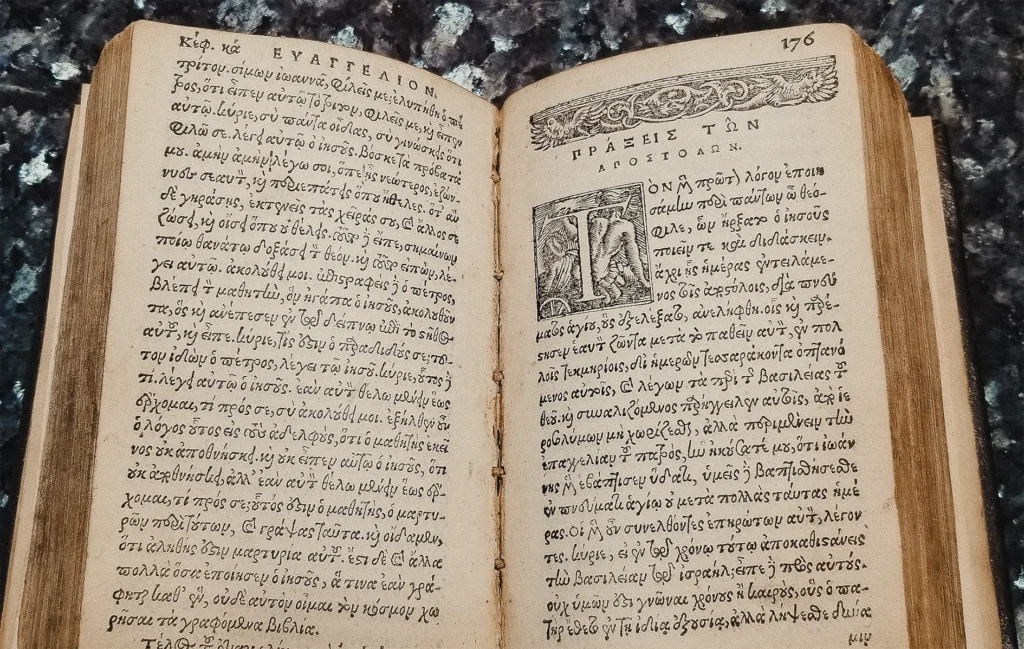 Κεφ. κά ΕΥΑΓΓΕΛΙΟΝ.
τρίτον. σίμων ἰωαννᾶ, φιλεῖς με; ἐλυπήθη ὁ πέ
τρος, ὅτι εἶπεν αὐτῷ τὸ τρίτον, φιλεῖς με, καὶ εἶπεν
αὐτῷ. κύριε, σὺ πάντα οἶδας, σὺ γινώσκεις ὅτι
φιλῶ σε. λέγει αὐτῷ ὁ ἰησοῦς. βόσκε τὰ πρόβατά
μου. ἀμὴν ἀμὴν λέγω σοι, ὅτε ἦς νεώτερος, ἐζών-
νυες σεαυτὸν, καὶ περιεπάτεις ὅπου ἤθελες. ὅταν
δὲ γηράσῃς, ἐκτενεῖς τὰς χεῖράς σου, καὶ ἄλλος σε
ζώσει, καὶ οἴσει ὅπου οὐ θέλεις. τοῦτο δὲ εἶπε, σημαίνων
ποίῳ θανάτῳ δοξάσει τὸν θεόν. καὶ τοῦτο εἰπὼν, λέ-
γει αὐτῷ. ἀκολούθει μοι. ἐπιστραφεὶς δὲ ὁ πέτρος,
βλέπει τὸν μαθητὴν, ὃν ἠγάπα ὁ ἰησοῦς, ἀκολουθοῦν
τα, ὃς καὶ ἀνέπεσεν ἐν τῷ δείπνῳ ἐπὶ τὸ στῆθος
αὐτοῦ, καὶ εἶπε. κύριε, τίς ἐστιν ὁ παραδιδούς σε; τοῦ-
τον ἰδὼν ὁ πέτρος, λέγει τῷ ἰησοῦ. κύριε, οὗτος δὲ
τί. λέγει αὐτῷ ὁ ἰησοῦς. ἐὰν αὐτὸν θέλω μένειν ἕως
ἔρχομαι, τί πρός σε, σὺ ἀκολούθει μοι. ἐξῆλθεν οὖν
ὁ λόγος οὗτος εἰς τοὺς ἀδελφοὺς, ὅτι ὁ μαθητὴς ἐκεῖ
νος οὐκ ἀποθνήσκει. καὶ οὐκ εἶπεν αὐτῷ ὁ ἰησοῦς, ὅτι
οὐκ ἀποθνήσκει, ἀλλ' ἐὰν αὐτὸν θέλω μένειν ἕως ἔρ-
χομαι, τί πρός σε; οὗτός ἐστιν ὁ μαθητὴς, ὁ μαρτυ-
ρῶν περὶ τούτων, καὶ γράψας ταῦτα. καὶ οἴδαμεν,
ὅτι ἀληθής ἐστιν μαρτυρία αὐτοῦ. ἔστι δὲ καὶ ἄλλα
πολλὰ ὅσα ἐποίησεν ὁ ἰησοῦς, ἅ τινα ἐὰν γρά-
φηται καθ' ἓν, οὐδὲ αὐτὸν οἶμαι τὸν κόσμον χω
ρῆσαι τὰ γραφόμενα βιβλία.
176
ΠΡΑΞΕΙΣ ΤΩΝ
ΑΠΟΣΤΟΛΩΝ.
ΤΟΝ μὲν πρῶτον λόγον ἐποιη
σάμην περὶ πάντων ὦ θεό-
φιλε, ὧν ἤρξατο ὁ ἰησοῦς
ποιεῖν τε καὶ διδάσκειν.
ἄχρι ἧς ἡμέρας ἐντειλάμε-
νος τοῖς ἀποστόλοις, διὰ πνεύ
ματος ἁγίου, οὓς ἐξελέξατο, ἀνελήφθη. οἷς καὶ παρέ-
στησεν ἑαυτὸν ζῶντα μετὰ τὸ παθεῖν αὐτὸν, ἐν πολ
λοῖς τεκμηρίοις, δι' ἡμερῶν τεσσαράκοντα ὀπτανό
μενος αὐτοῖς, καὶ λέγων τὰ περὶ τῆς βασιλείας τοῦ
θεοῦ. καὶ συναλιζόμενος παρήγγειλεν αὐτοῖς, ἀπὸ ἱε
ροσολύμων μὴ χωρίζεσθαι, ἀλλὰ περιμένειν τὴν
ἐπαγγελίαν τοῦ πατρὸς, ἣν ἠκούσατέ μου, ὅτι ἰωάν
νης μὲν ἐβάπτισεν ὕδατι, ὑμεῖς δὲ βαπτισθήσεσθε
ἐν πνεύματι ἁγίῳ οὐ μετὰ πολλὰς ταύτας ἡμέ
ρας. Οἱ μὲν οὖν συνελθόντες ἐπηρώτων αὐτὸν, λέγον
τες. κύριε, εἰ ἐν τῷ χρόνῳ τούτῳ ἀποκαθιστάνεις
τὴν βασιλείαν τῷ ἰσραήλ; εἶπε δὲ πρὸς αὐτούς.
οὐχ ὑμῶν ἐστι γνῶναι χρόνους ἢ καιροὺς, οὓς ὁ πα-
τὴρ ἔθετο ἐν τῇ ἰδίᾳ ἐξουσίᾳ, ἀλλὰ λήψεσθε δύνα-
μιν